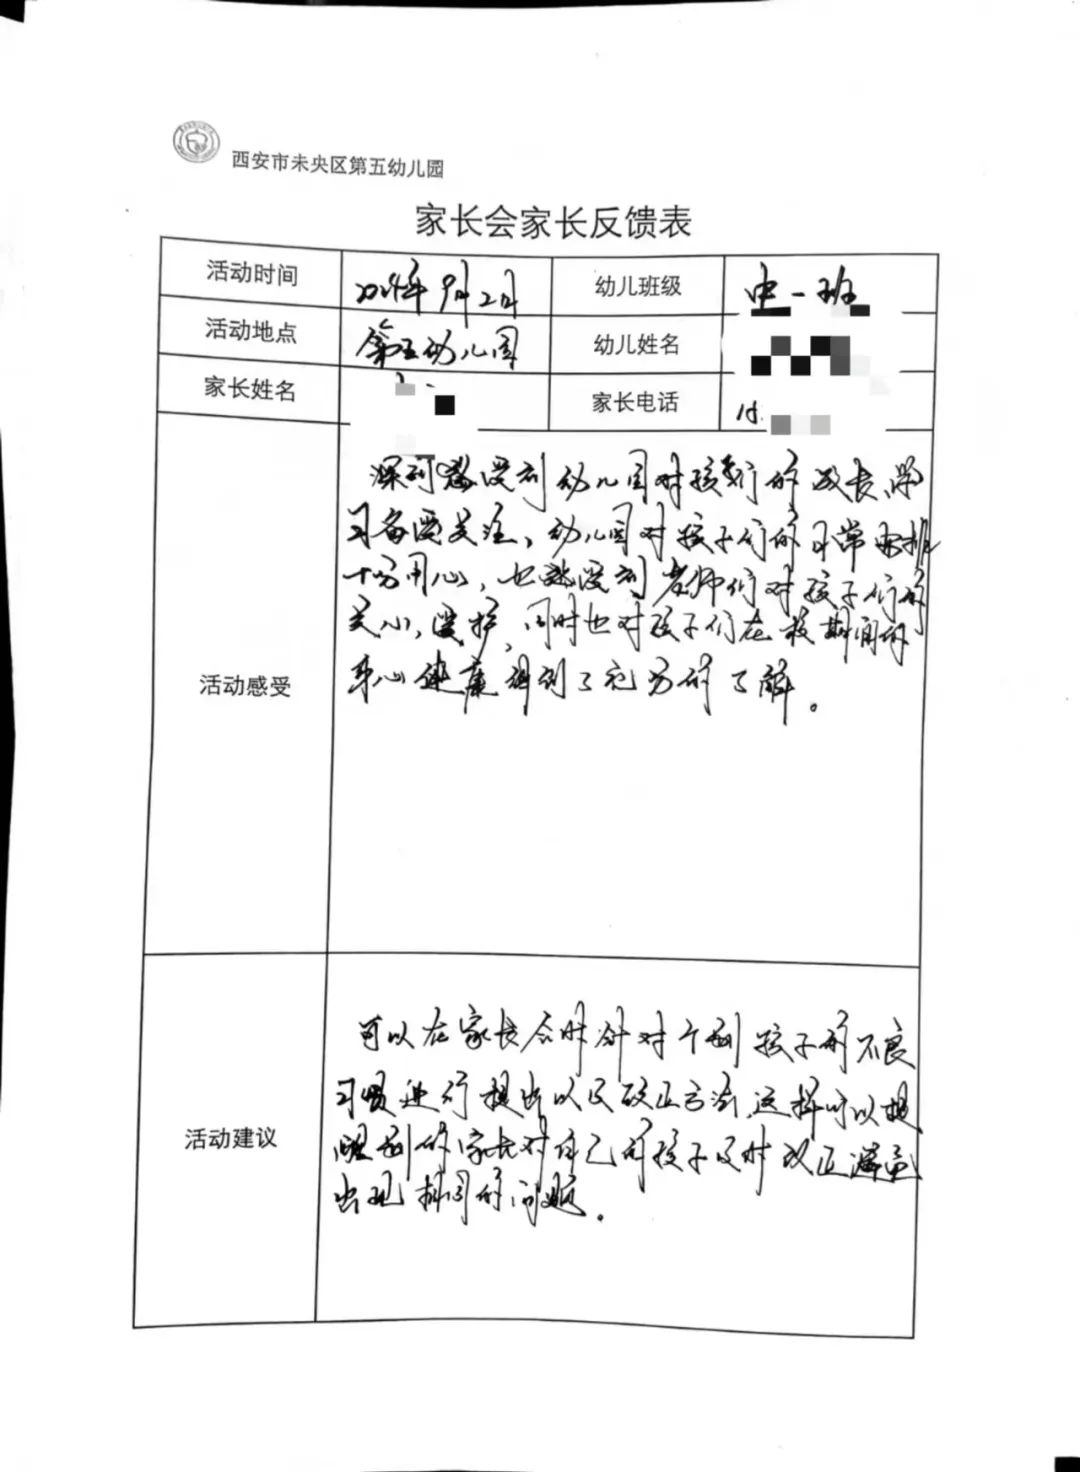 西安市未央区第五幼儿园
家长会家长反馈表
活动时间 2024年9月2日 幼儿班级 中一班
活动地点 第五幼儿园 幼儿姓名
家长姓名 家长电话 15
活动感受
深刻感受到幼儿园对孩子们的成长、学
习备受关注,幼儿园对孩子们的日常安排
十分用心,也感受到老师们对孩子们的
关心,爱护,同时也对孩子们在校期间的
身心健康得到了充分的了解。
活动建议
可以在家长会时针对个别孩子的不良
习惯进行提出以及改正方法,这样可以提
醒到的家长对自己的孩子及时改正
出现相同的问题。